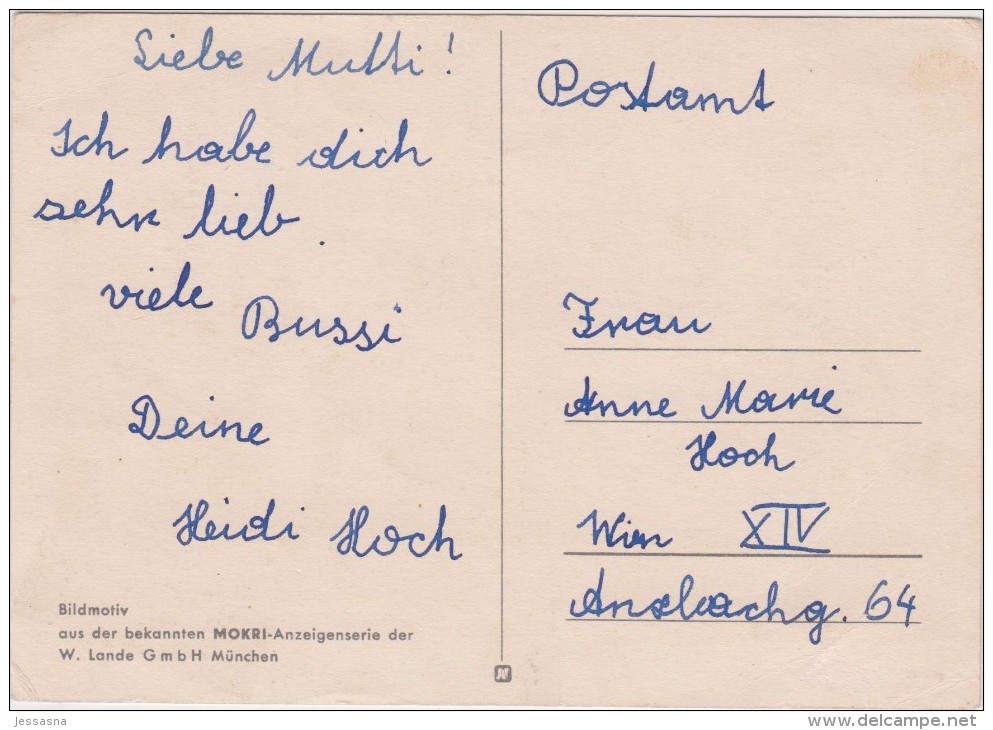 Liebe Mutti!
Ich habe dich
sehr lieb.
viele
Bussi
Deine
Heidi Hoch
Bildmotiv
aus der bekannten MOKRI-Anzeigenserie der
W. Lande GmbH München
Postamt
Frau
Anne Marie
Hoch
Wien XIV
Anzbachg. 64
jessasna
www.delcampe.net